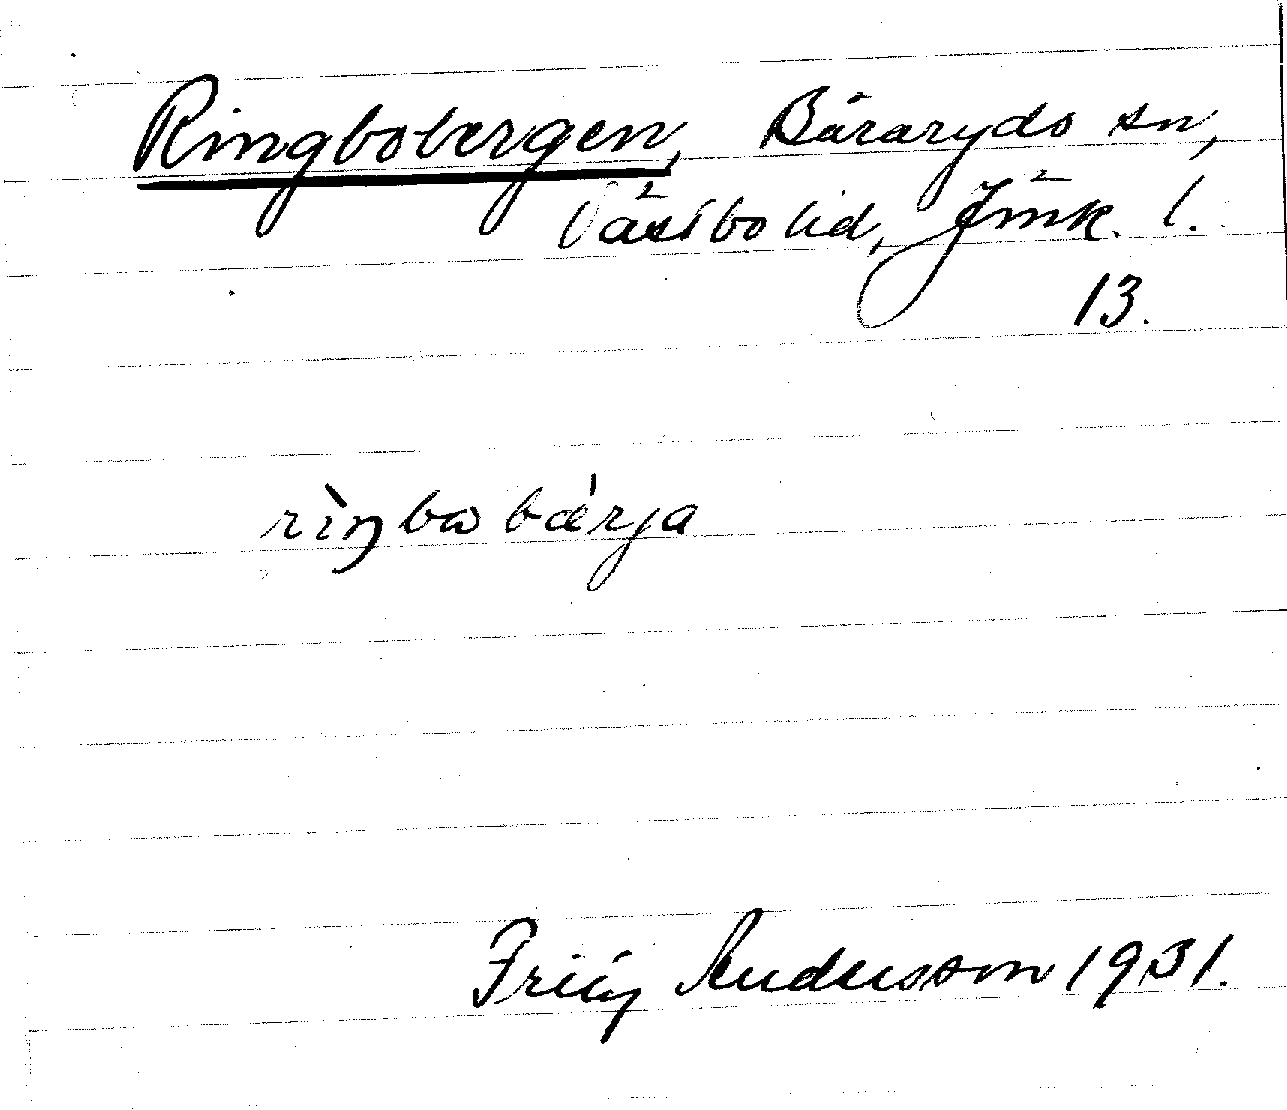 Ringbobergen, Bäraryds sn,
Västbo hd, Jönk. l.
13.
rìŋbo bǽrja
Friöy Andersson 1931.